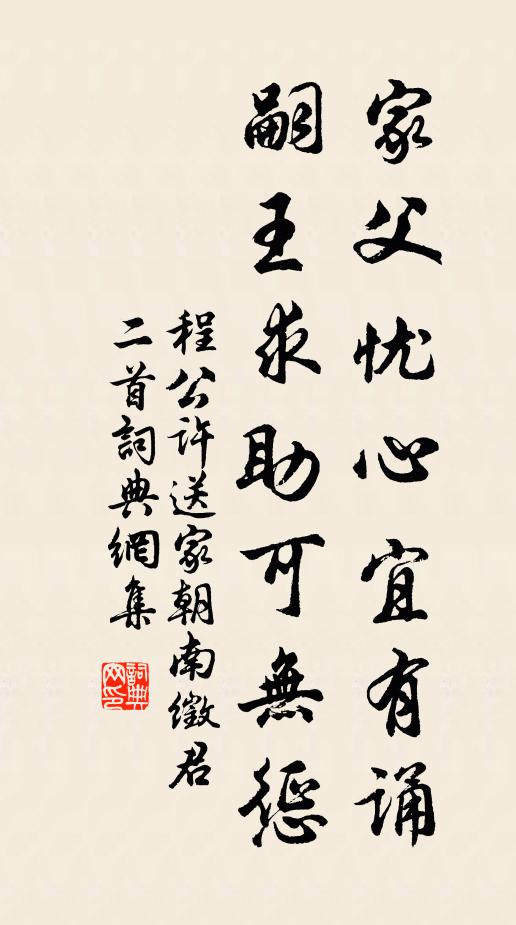 家父忧心宜有诵
嗣王求助可無惩
程公许送家朝南徵君
二首詞典網集
詞典网印